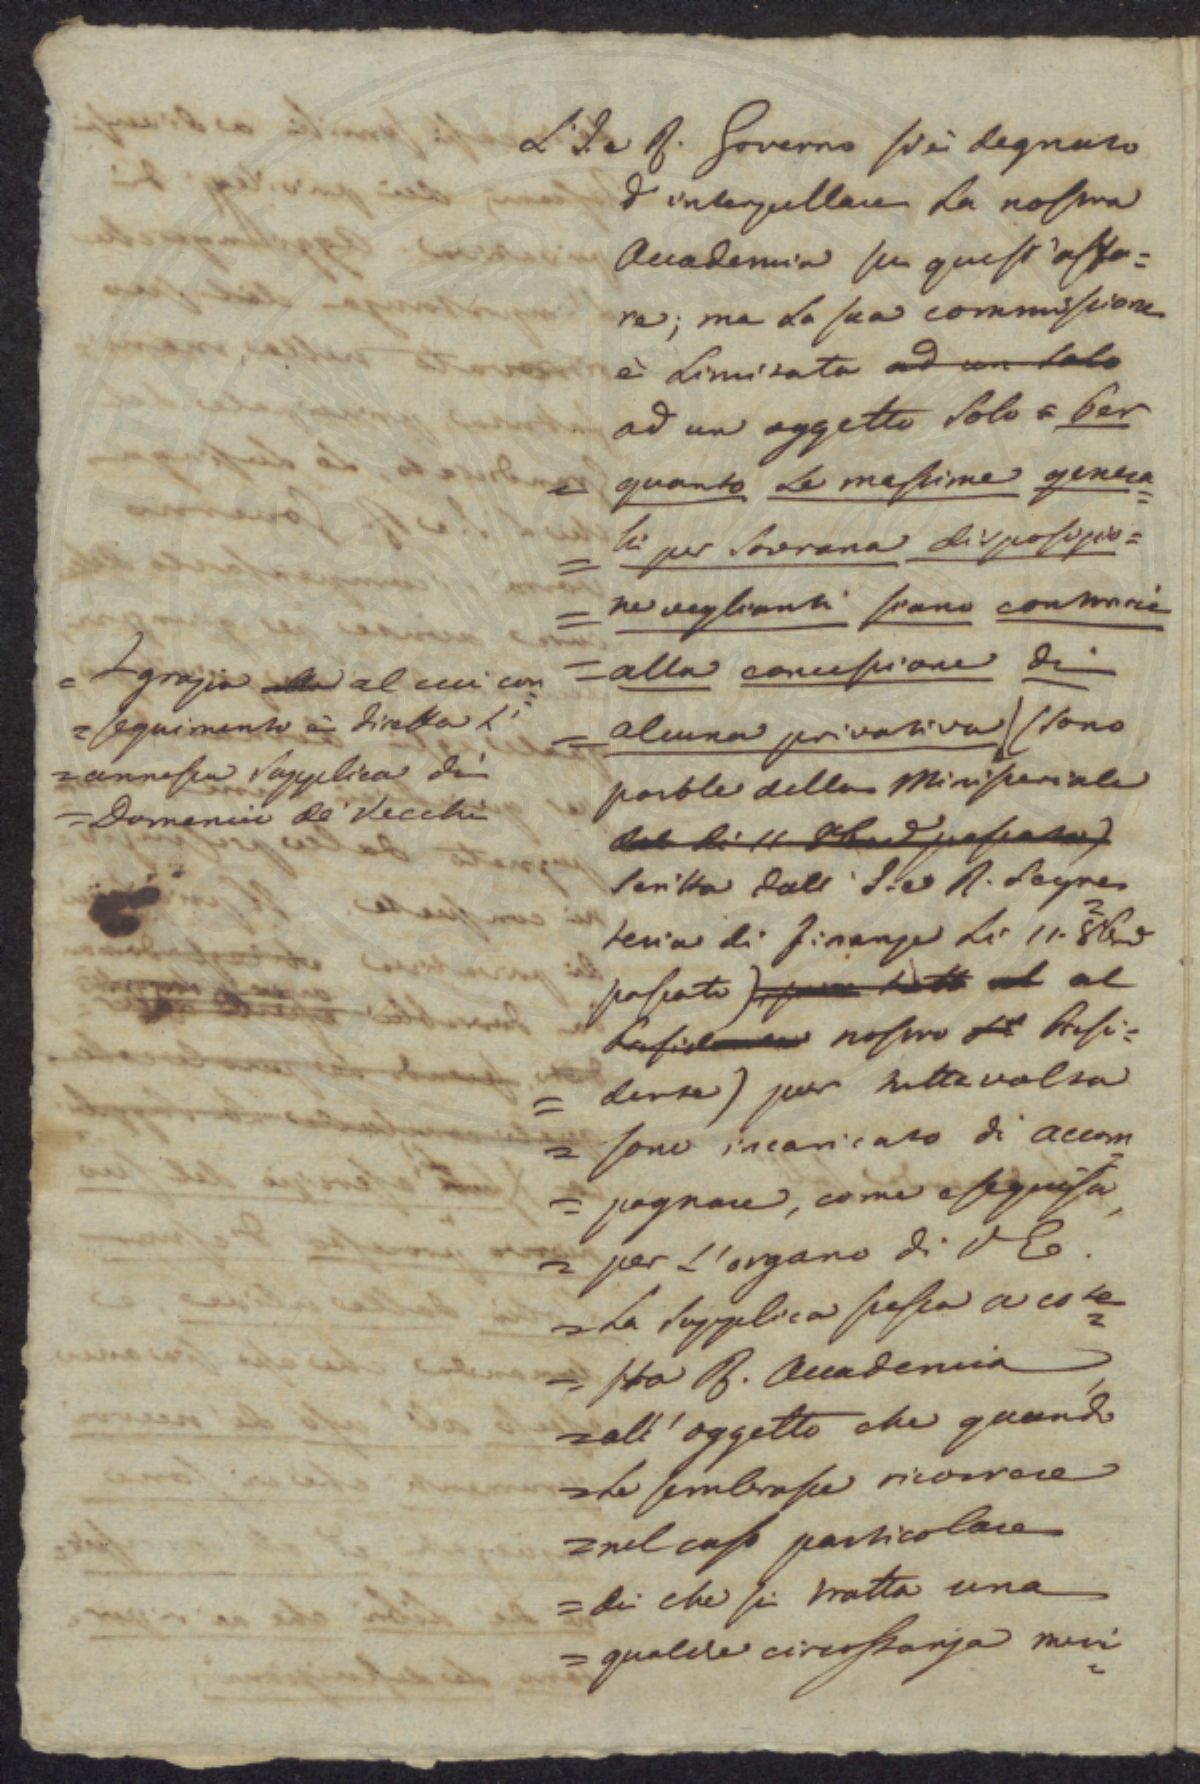 L'I. e R. Governo si è degnato
d'interpellare la nostra
Accademia su quest'affa=
re; ma la sua commissione
è limitata ad un solo
ad un oggetto solo = Per
= quanto le massime genera=
= li per Sovrana disposizio=
= ne veglianti siano contrarie
= alla concessione di
= alcuna privativa (sono
parole della Ministeriale
del dì 11 passato)
scritta dall'I. e R. Segre
teria di Finanze li 11. 8bre
passato) al
Presidente nostro Presi=
= dente) pur tuttavolta
= sono incaricato di accom
= pagnare, come eseguisco,
= per l'organo di V E.
= la supplica stessa a cote=
= sta R. Accademia,
= all'oggetto che quando
= le sembrasse ricorrere
= nel caso particolare
= di che si tratta una
= qualche circostanza meri=
= grazia alla al cui con=
= seguimento è diretta l'
= annessa supplica di
= Domenico de' Vecchi